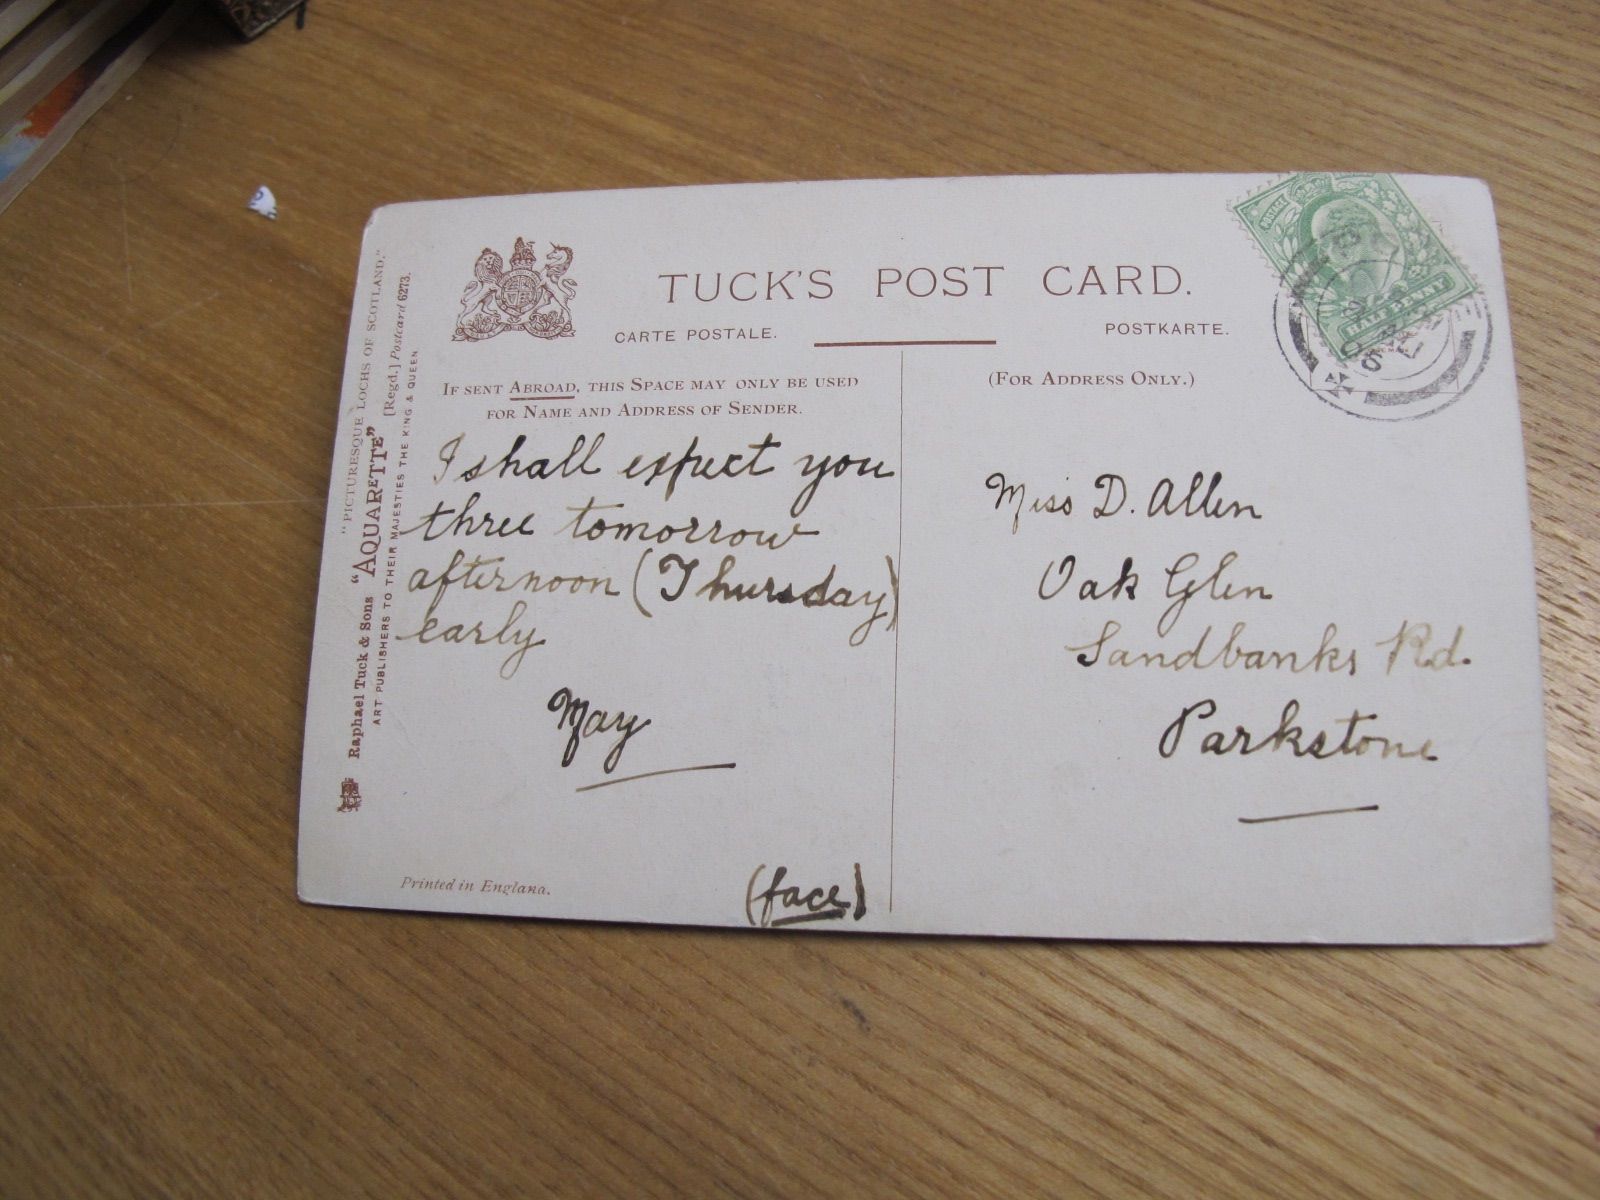 "PICTURESQUE LOCHS OF SCOTLAND."
Raphael Tuck & Sons "AQUARETTE" [Regd.] Postcard 6273.
ART PUBLISHERS TO THEIR MAJESTIES THE KING & QUEEN
TUCK'S POST CARD.
CARTE POSTALE.
POSTKARTE.
IF SENT ABROAD, THIS SPACE MAY ONLY BE USED
FOR NAME AND ADDRESS OF SENDER.
I shall expect you
three tomorrow
afternoon (Thursday)
early
May
(face)
Printed in England.
(FOR ADDRESS ONLY.)
Miss D. Allen
Oak Glen
Sandbanks Rd.
Parkstone
POSTAGE
HALF PENNY